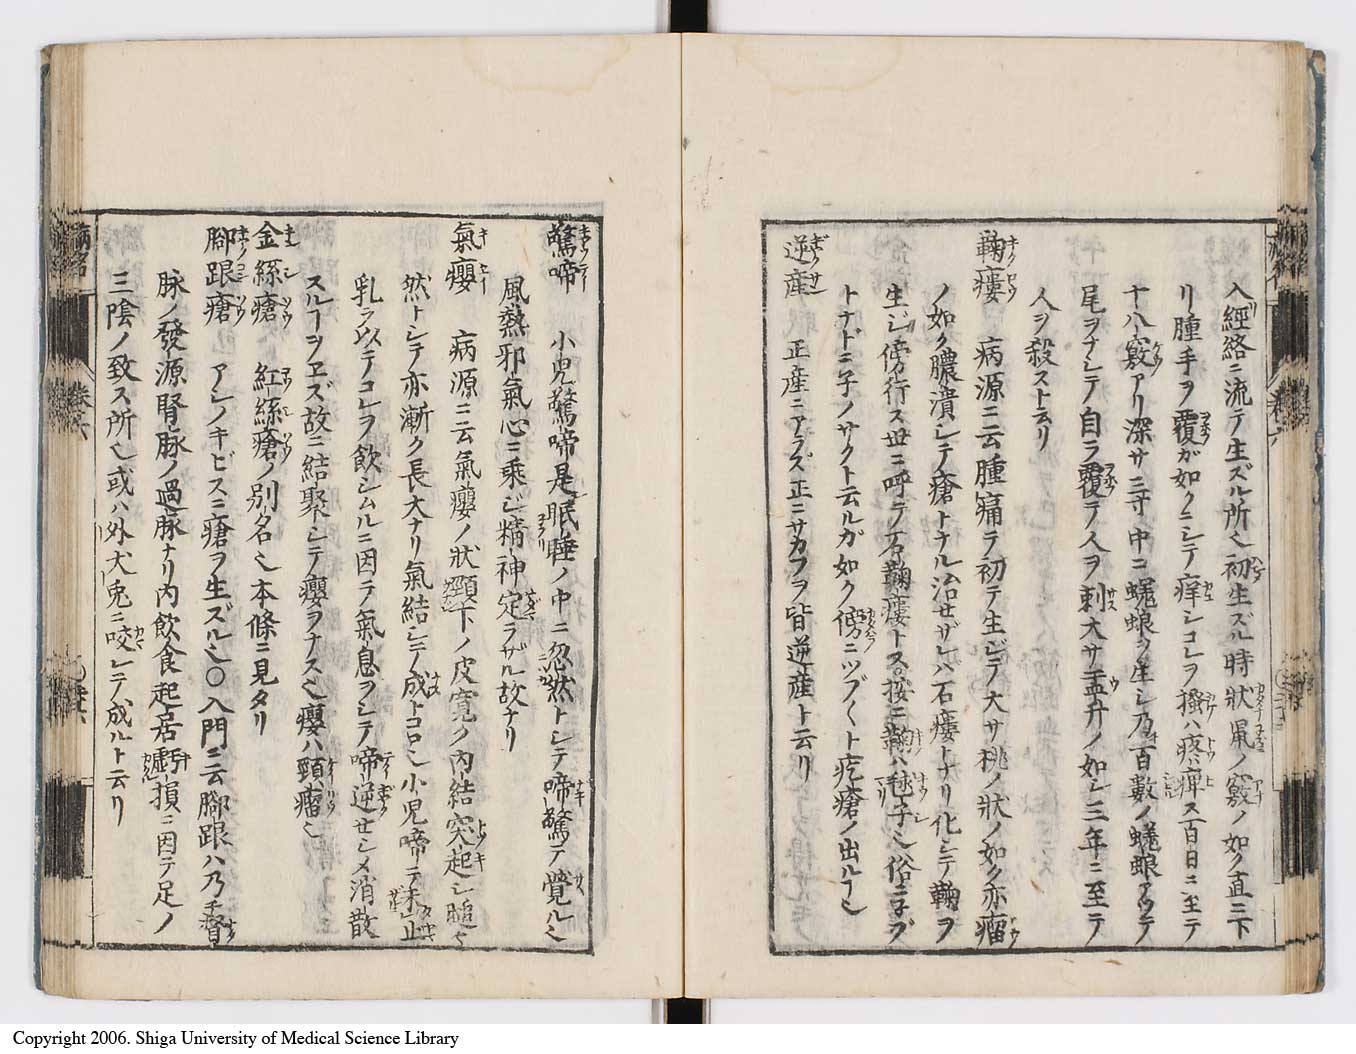 入經絡ニ流テ生ズル所也初生ズル時狀鼠ノ竅ノ如ク直ニ下
リ腫手ヲ覆ガ如クニシテ痒シコレヲ搔ハ疼痺ス百日ニ至テ
十八竅アリ深サ三寸中ニ蟯蜋ヲ生シ乃百數ノ蟯蜋アツテ
尾ヲナシテ自ラ覆テ人ヲ刺大サ盂升ノ如シ三年ニ至テ
人ヲ殺スト云リ
鞠瘻 病源ニ云腫痛ヲ初テ生ジテ大サ桃ノ狀ノ如ク亦瘤
ノ如ク膿潰シテ瘡トナル治セザレハ石瘻トナリ化シテ鞠ヲ
生ジ傍行ス世ニ呼テ石鞠瘻トス。按ニ鞠ハ毬子也俗ニ子ブ
トナド云子ノサクト云ルガ如ク傍ニツブ〱ト疙瘡ノ出ルヿ也
逆産 正産ニアラズ正ニサカフヲ皆逆産ト云リ
驚啼 小兒驚啼是眠睡ノ中ニ忽然トシテ啼驚テ覺ル也
風熱邪氣心ニ乘ジ精神定ラザル故ナリ
氣癭 病源ニ云氣癭ノ狀頸下ノ皮寬ク内結突起シ膇々
然トシテ亦漸ク長大ナリ氣結シテノ成トコロ也小児啼テ未止
乳ヲ以テコレヲ飲シムルニ因テ氣息ヲシテ啼逆セシメ消散
スルヿヲヱズ故ニ結聚シテ癭ヲナス也癭ハ頸瘤也
金絲瘡 紅絲瘡ノ別名也本條ニ見タリ
脚跟瘡 アシノキビスニ瘡ヲ生ズル也〇入門ニ云脚跟ハ乃督
脉ノ發源腎脉ノ過脉ナリ内飲食起居虧損ニ因テ足ノ
三陰ノ致ス所也或ハ外犬兎ニ咬レテ成ルト云リ
Copyright 2006. Shiga University of Medical Science Library